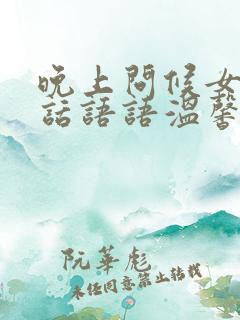 晚上問候女
話語語溫馨
阮華彪
未经同意禁止转载